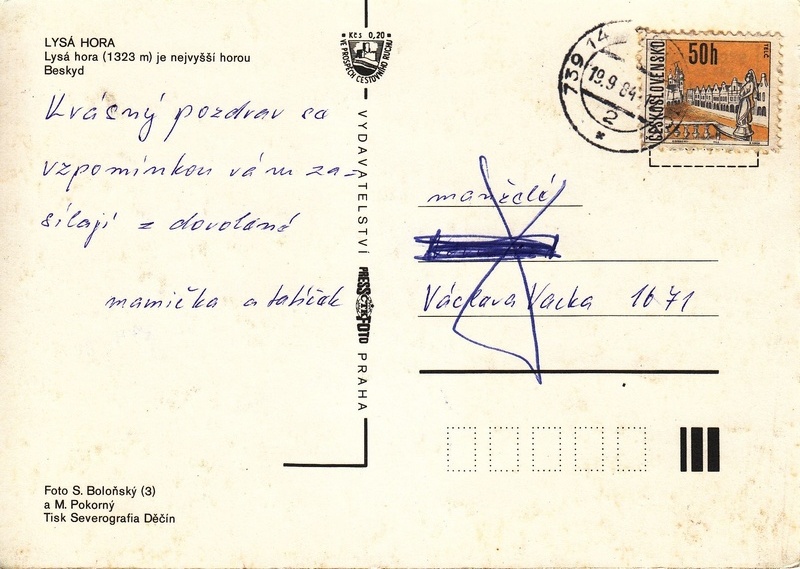 LYSÁ HORA
Lysá hora (1323 m) je nejvyšší horou
Beskyd
Krásný pozdrav se
vzpomínkou vám za-
sílají z dovolené
mamička a tatíček
Foto S. Boloňský (3)
a M. Pokorný
Tisk Severografia Děčín
Kčs 0,20
VE PROSPĚCH CESTOVNÍHO RUCHU
VYDAVATELSTVÍ
PRESSFOTO
ČTK
PRAHA
739 14
19.9.84
2
ČESKOSLOVENSKO
50h
TELČ
manželé
Václava Vacka 1671